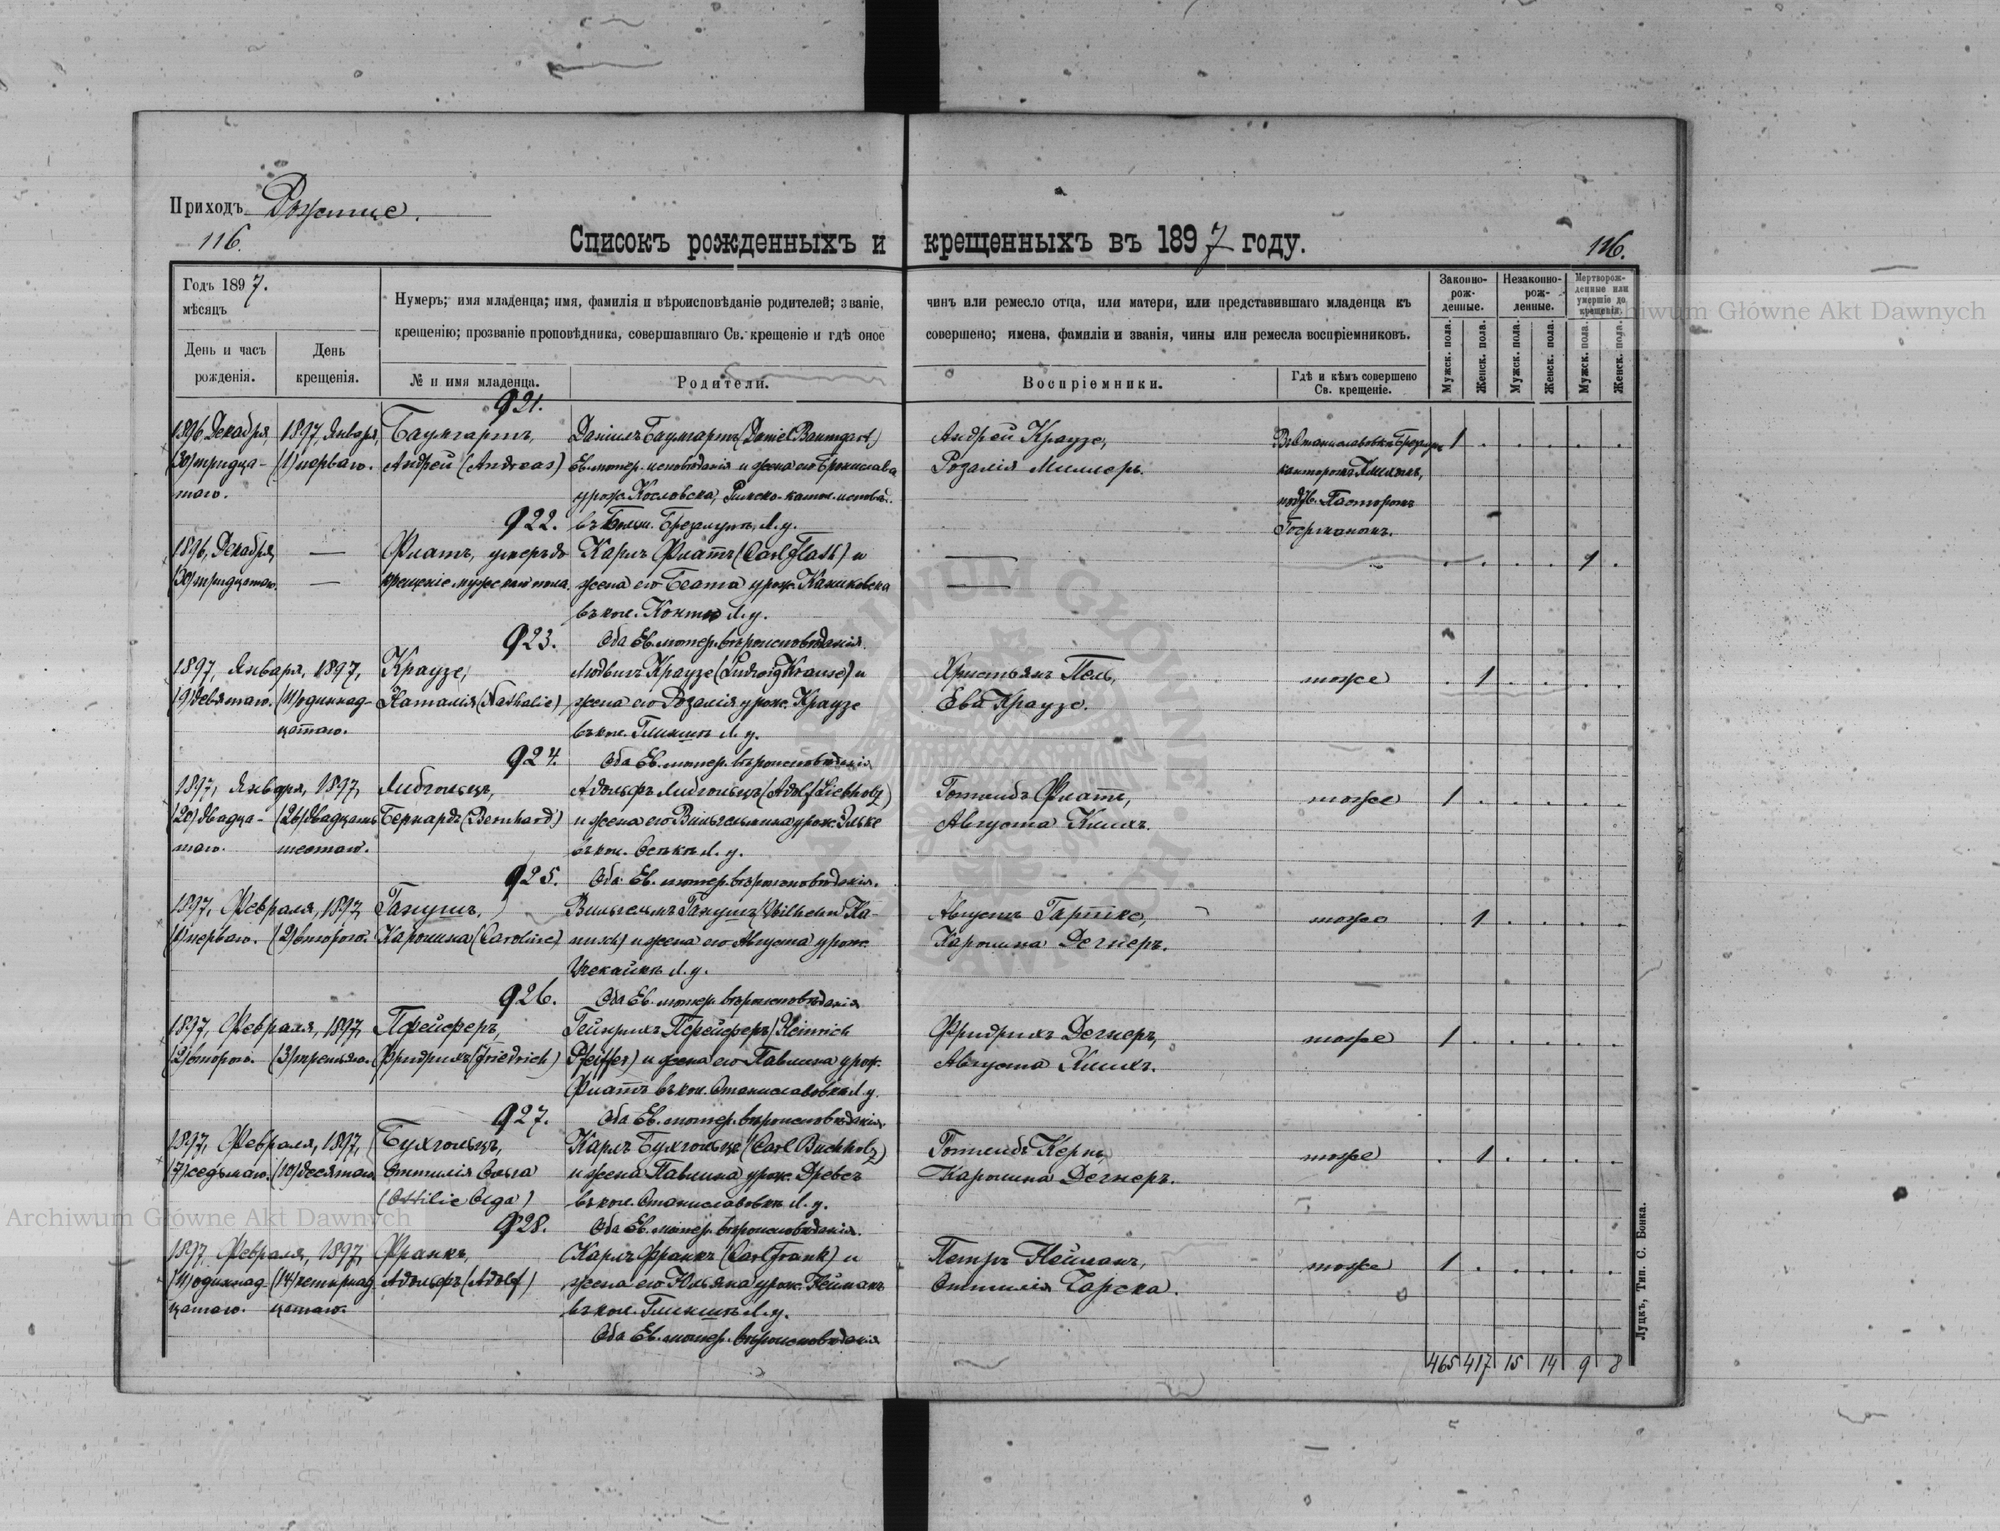 Приходъ Рожище.
116.
Списокъ рожденныхъ и крещенныхъ въ 1897 году.
116.
Годъ 1897.
мѣсяцъ
День и часъ рожденія.
День крещенія.
Нумеръ; имя младенца; имя, фамилія и вѣроисповѣданіе родителей; званіе, чинъ или ремесло отца, или матери, или представившаго младенца къ
крещенію; прозваніе проповѣдника, совершавшаго Св. крещеніе и гдѣ оное совершено; имена, фамиліи и званія, чины или ремесла воспріемниковъ.
№ и имя младенца.
Родители.
Воспріемники.
Гдѣ и кѣмъ совершено Св. крещеніе.
Законно-рожденные.
Незаконно-рожденные.
Мертворожденные или умершіе до крещенія.
Мужск. пола.
Женск. пола.
Мужск. пола.
Женск. пола.
Мужск. пола.
Женск. пола.
921.
1896, Декабря 1897, Января, Баумгартъ, Даніилъ Баумгартъ (Daniel Baumgart) Андрей Краузе, 1
(30) тридца- (1) перваго. Андрей (Andreas) Ев. лютер. исповѣданія и жена его Брониславa Розалія Миллеръ.
таго. урож. Козловска, Римско-катол. исповѣ.
922.
1896, Декабря, — Флатъ, умеръ до Карлъ Флатъ (Carl Flath) и — 1
(30) тридцатаго. — крещенія мужескаго пола. жена его Беата урож. Каниковска —
въ кол. Л. у.
923. Оба Ев. лютер. вѣроисповѣданія
1897, Января, 1897, Краузе, Людвигъ Краузе (Ludwig Krause) и Христьянъ Пель, тоже 1
(9) девятаго. (11) одиннад- Наталія (Nathalie) жена его Розалія урож. Краузе Ева Краузе.
цатаго. въ кол. Л. у.
924. Оба Ев. лютер. вѣроисповѣданія
1897, Января, 1897, Либгольцъ, Адольфъ Либгольцъ (Adolf Liebholz) Готлибъ Флатъ, тоже 1
(20) двадца- (26) двадцать Бернардъ (Bernhard) и жена его Вильгельмина урож. Августа Климъ.
таго. шестаго. въ кол. Л. у.
925. Оба Ев. лютер. вѣроисповѣданія.
1897, Февраля, 1897, Ганушъ, Вильгельмъ Ганушъ (Wilhelm Ha- Августъ тоже 1
(1) перваго. (2) втораго. Каролина (Caroline) nusch) и жена его Августа урож. Каролина Дегнеръ.
Л. у.
926. Оба Ев. лютер. вѣроисповѣданія
1897, Февраля, 1897, Пфейферъ, Гейнрихъ Пфейферъ (Heinrich Фридрихъ Дегнеръ, тоже 1
(2) втораго. (3) третьяго. Фридрихъ (Friedrich) Pfeiffer) и жена его Павлина урож. Августа Климъ.
Флатъ въ кол. Станиславовкѣ Л. у.
927. Оба Ев. лютер. вѣроисповѣданія
1897, Февраля, 1897, Бухгольцъ, Карлъ Бухгольцъ (Carl Buchholz) Готлибъ Кернъ, тоже 1
(7) седьмаго. (10) десятаго. Оттилія Ольга и жена Павлина урож. Древсъ Каролина Дегнеръ.
(Ottilie Olga) въ кол. Станиславовкѣ Л. у.
928. Оба Ев. лютер. вѣроисповѣданія.
1897, Февраля, 1897, Франкъ, Карлъ Франкъ (Carl Frank) и Петръ Нейманъ, тоже 1
(11) одиннад- (14) четырнад- Адольфъ (Adolf) жена его Юльяна урож. Нейманъ Оттилія Царска.
цатаго. цатаго. въ кол. Л. у.
Оба Ев. лютер. вѣроисповѣданія
465 417 15 14 9 8
Луцкъ, Тип. С. Бонка.
Archiwum Główne Akt Dawnych
Archiwum Główne Akt Dawnych